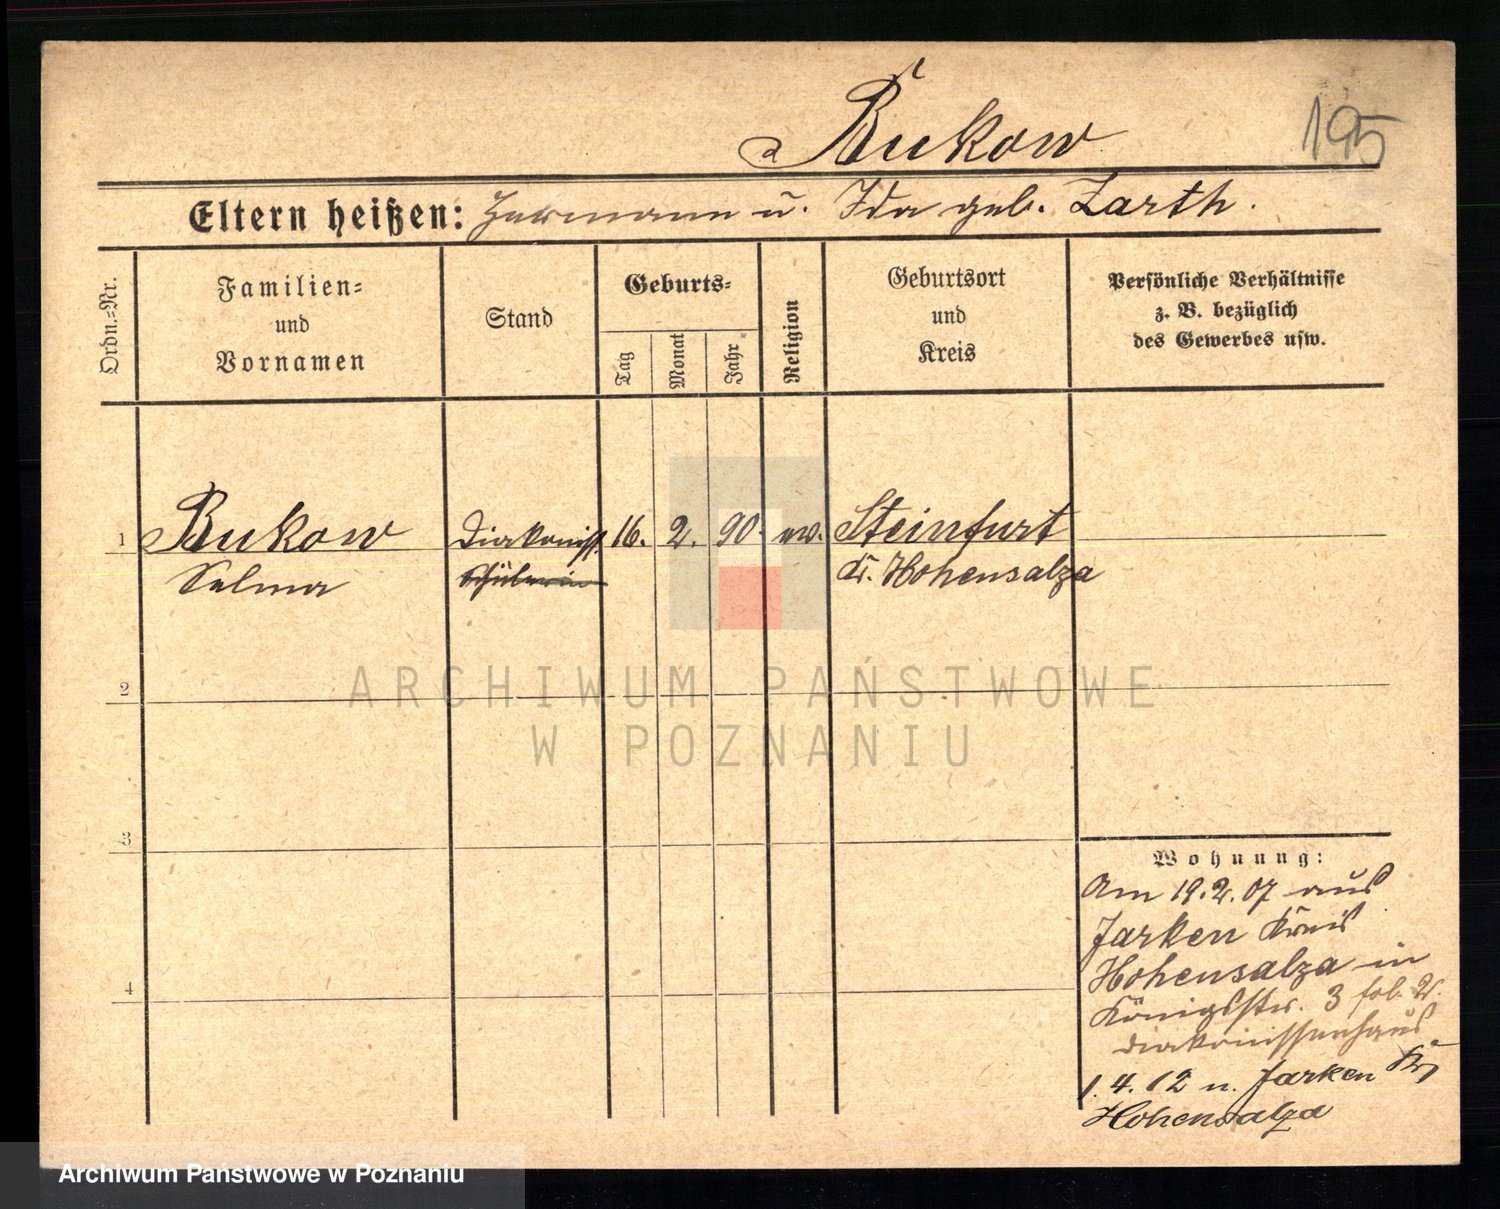 Bukow
195
Eltern heißen: Hermann u. Ida geb. Zarth.
Ordn.-Nr.
Familien-
und
Vornamen
Stand
Geburts-
Tag
Monat
Jahr
Religion
Geburtsort
und
Kreis
Persönliche Verhältnisse
z. B. bezüglich
des Gewerbes usw.
1
Bukow
Selma
Diakoniss.
Schülerin
16. 2. 90. ev.
Steinfurt
Kr. Hohensalza
2
3
4
Wohnung:
Am 19.2.07 aus
Jarken Kreis
Hohensalza in
Königsstr. 3
Diakonissenhaus
1.4.12 n. Jarken Kr.
Hohensalza
ARCHIWUM PAŃSTWOWE
W POZNANIU
Archiwum Państwowe w Poznaniu